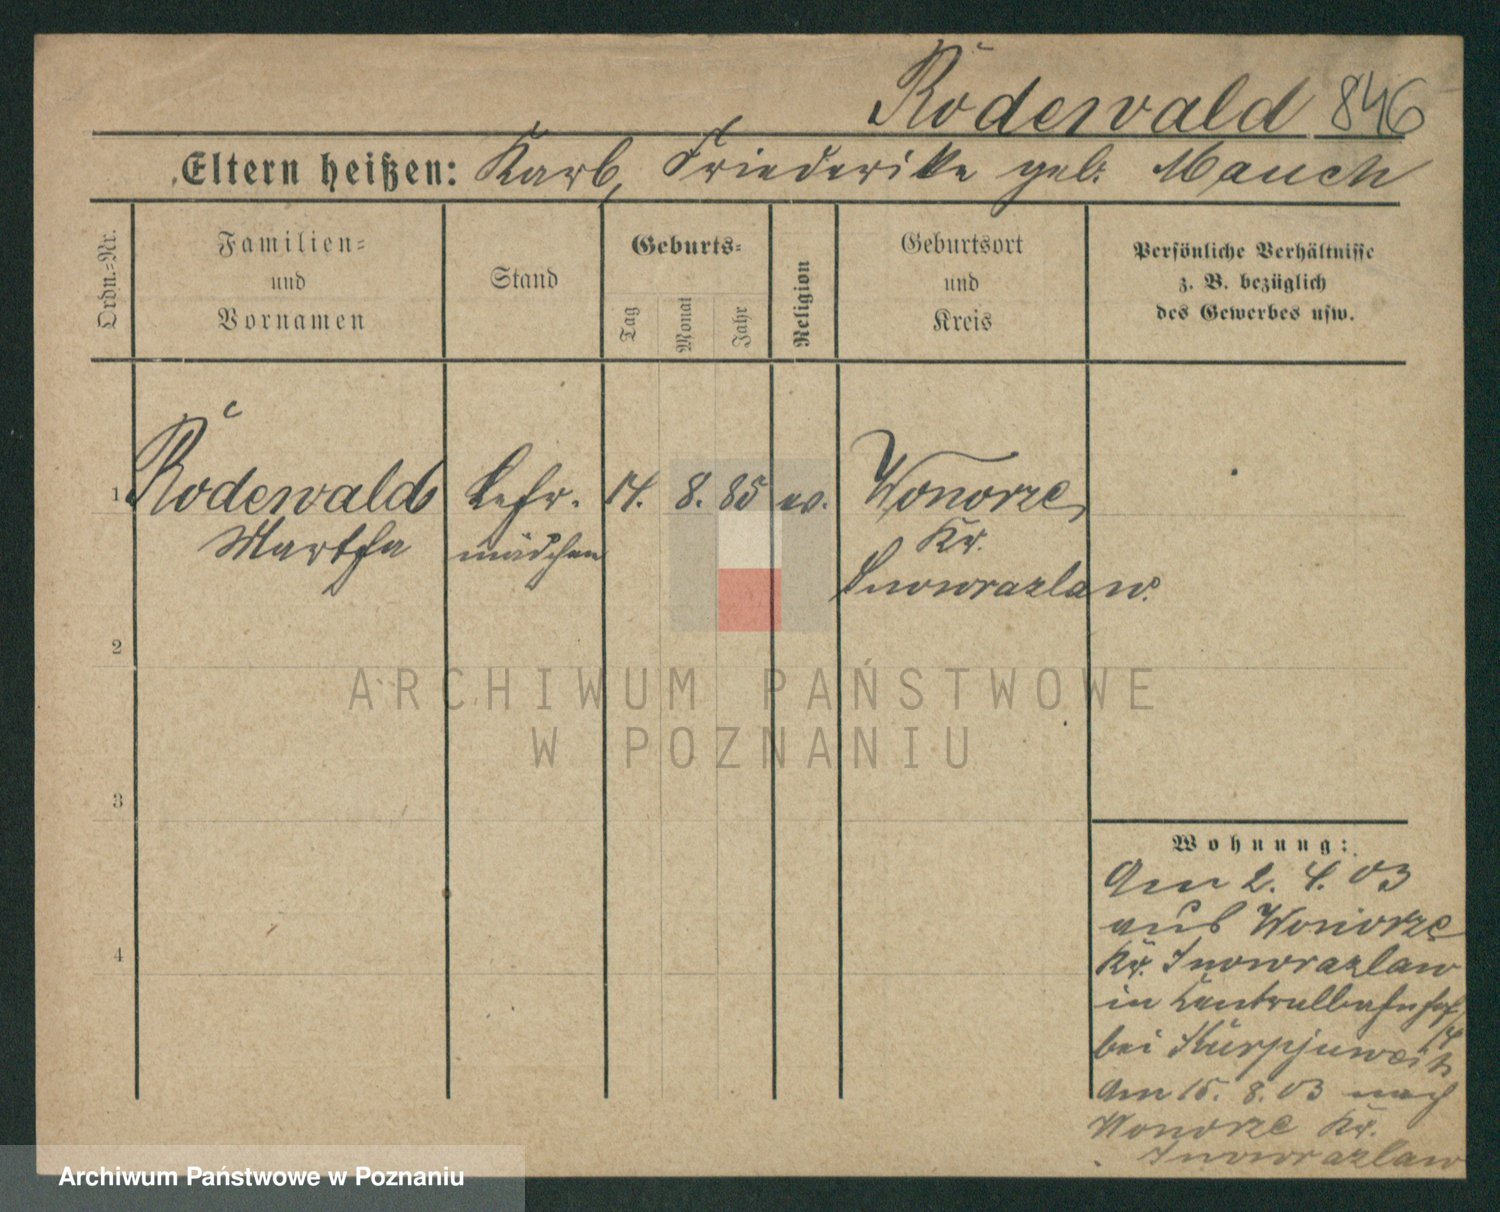 Rodewald 846
Eltern heißen: Karb, Friederike geb. Mauch
Ordn.-Nr.
Familien-
und
Vornamen
Stand
Geburts-
Tag
Monat
Jahr
Religion
Geburtsort
und
Kreis
Persönliche Verhältnisse
z. B. bezüglich
des Gewerbes usw.
1 Rodewald Lehr. 14. 8. 85 ev. Wonorze
Martha mädchen Kr.
Inowrazlaw.
2
3
4
Wohnung:
Am 2. 4. 03
aus Wonorze
Kr. Inowrazlaw
in Centralbahnhof
bei
Am 15. 8. 03 nach
Wonorze Kr.
Inowrazlaw
ARCHIWUM PAŃSTWOWE
W POZNANIU
Archiwum Państwowe w Poznaniu